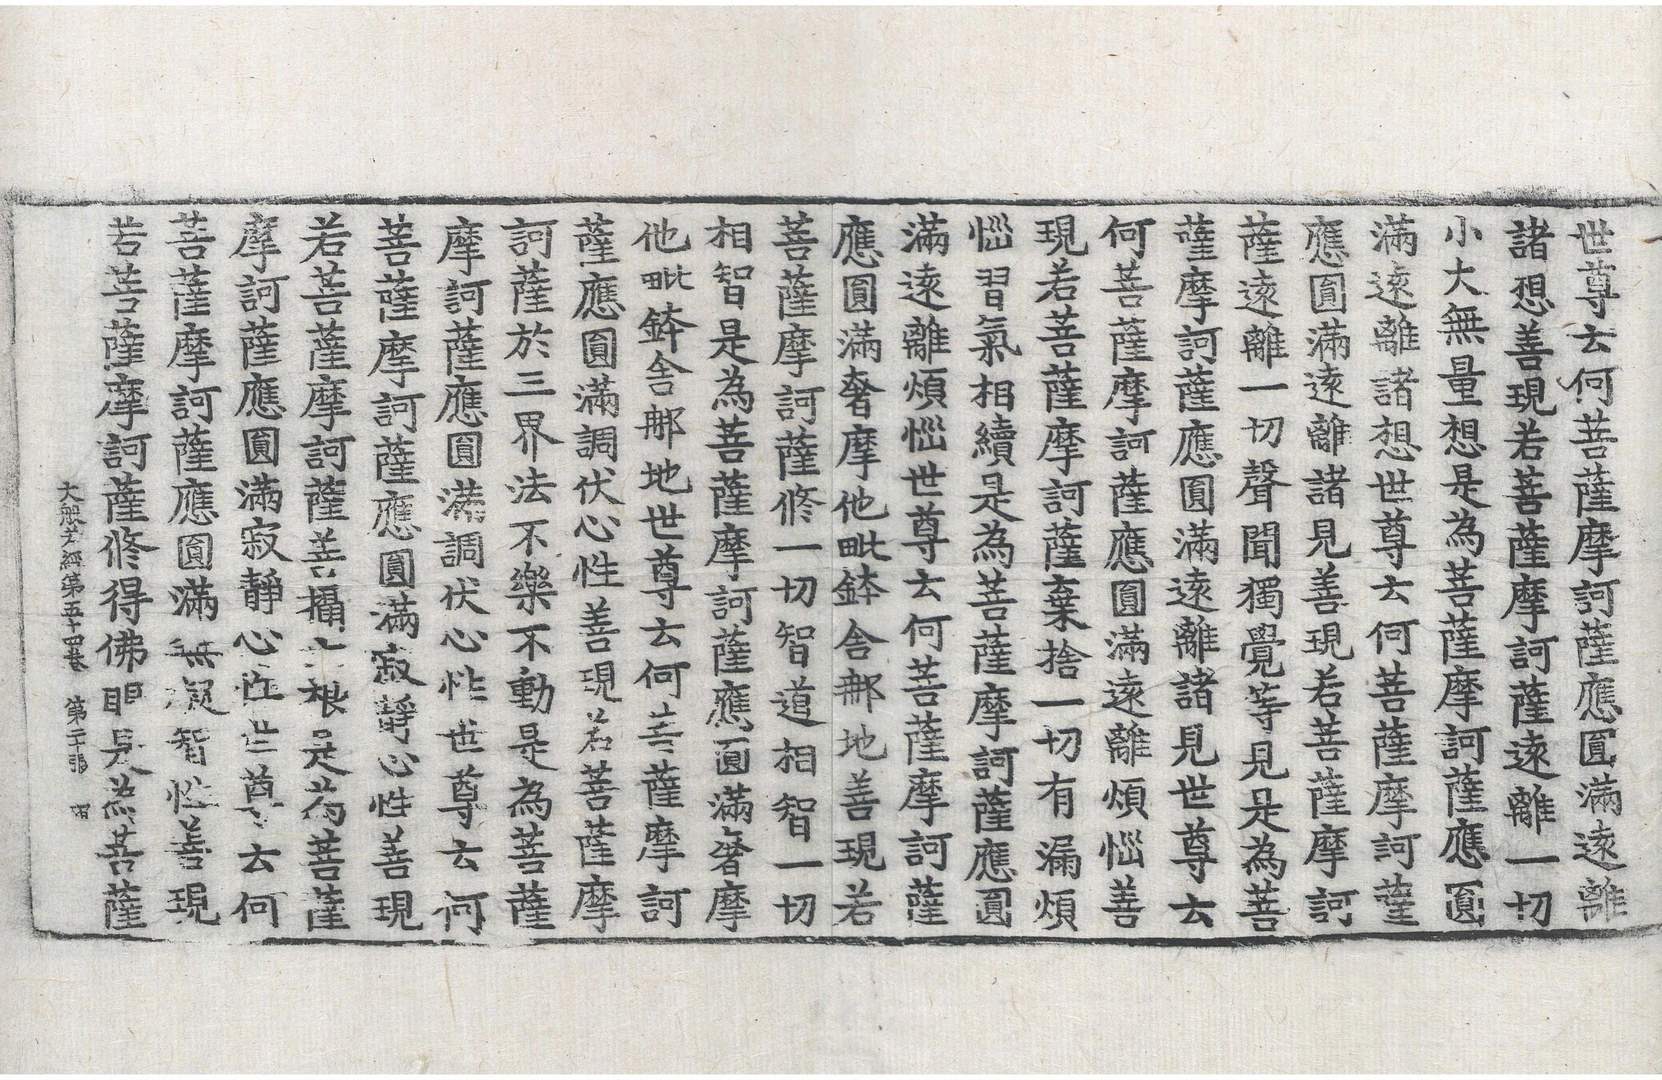 世尊云何菩薩摩訶薩應圓滿遠離
諸想善現若菩薩摩訶薩遠離一切
小大無量想是為菩薩摩訶薩應圓
滿遠離諸想世尊云何菩薩摩訶薩
應圓滿遠離諸見善現若菩薩摩訶
薩遠離一切聲聞獨覺等見是為菩
薩摩訶薩應圓滿遠離諸見世尊云
何菩薩摩訶薩應圓滿遠離煩惱善
現若菩薩摩訶薩棄捨一切有漏煩
惱習氣相續是為菩薩摩訶薩應圓
滿遠離煩惱世尊云何菩薩摩訶薩
應圓滿奢摩他毗鉢舍那地善現若
菩薩摩訶薩修一切智道相智一切
相智是為菩薩摩訶薩應圓滿奢摩
他毗鉢舍那地世尊云何菩薩摩訶
薩應圓滿調伏心性善現若菩薩摩
訶薩於三界法不樂不動是為菩薩
摩訶薩應圓滿調伏心性世尊云何
菩薩摩訶薩應圓滿寂靜心性善現
若菩薩摩訶薩善攝六根是為菩薩
摩訶薩應圓滿寂靜心性世尊云何
菩薩摩訶薩應圓滿無礙智性善現
若菩薩摩訶薩修得佛眼是為菩薩
大般若經第五十四卷 第二十張